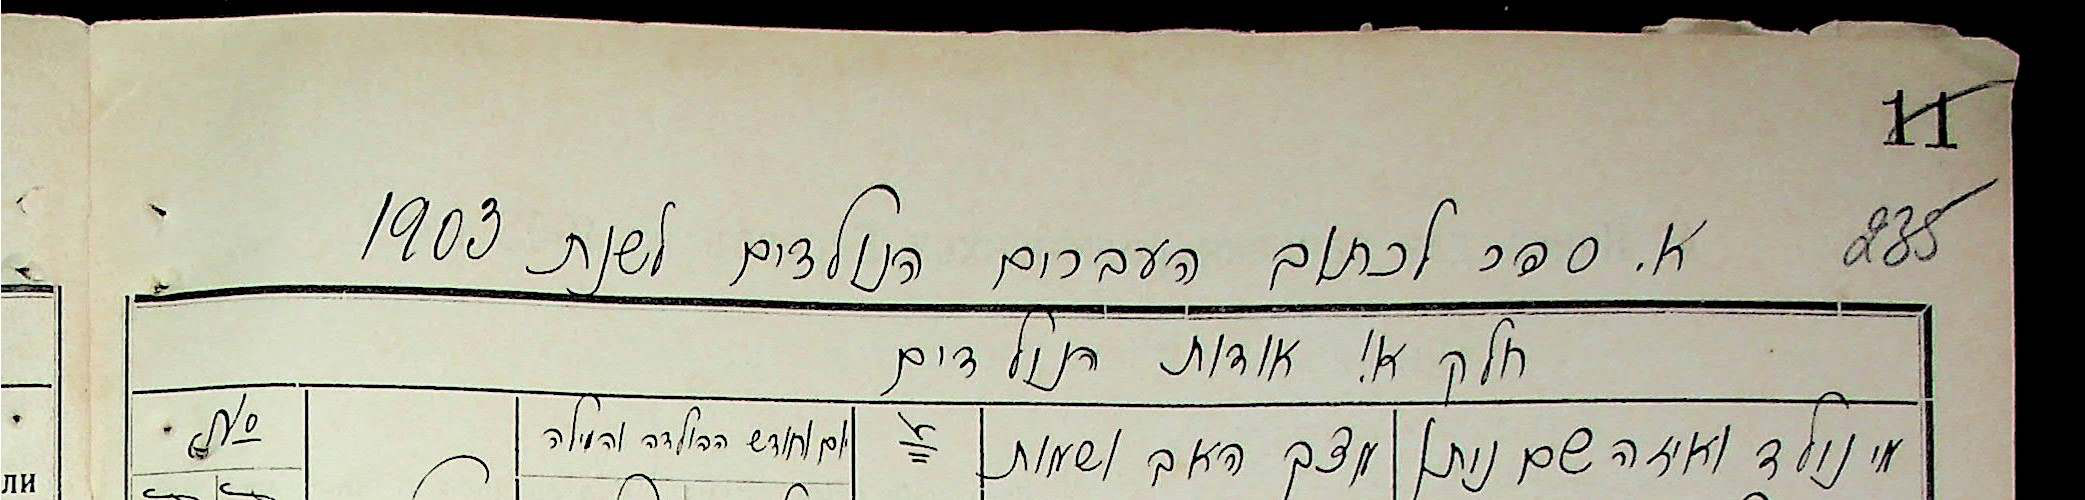 11
235
א. ספר לכתוב העברים הנולדים לשנת 1903
חלק א׳ אודות הנולדים
מי נולד ואיזה שם ניתן
מצב האב ושמות
יום וחודש ההולדה והמילה
№
ли